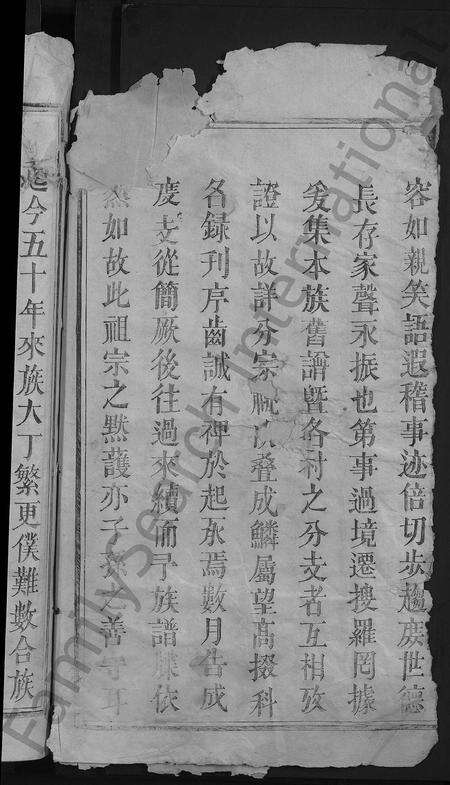 容如親笑語遐稽事迹倍切步趨庶世德
長存家聲永振也第事過境遷搜羅罔據
爰集本族舊譜暨各村之分支者互相攷
證以故詳分宗 以叠成鱗屬望高掇科
名錄刋序齒誠有裨於起承焉數月告成
度支從簡厥後往過來續而予族譜 依
然如故此祖宗之默護亦子孫之善守耳
迄今五十年來族大丁繁更僕難數合族
FamilySearch International